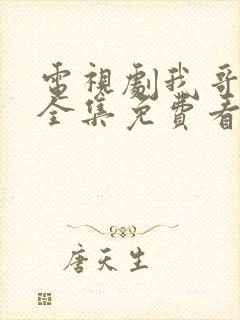 電視劇我哥
全集免費看
唐天生